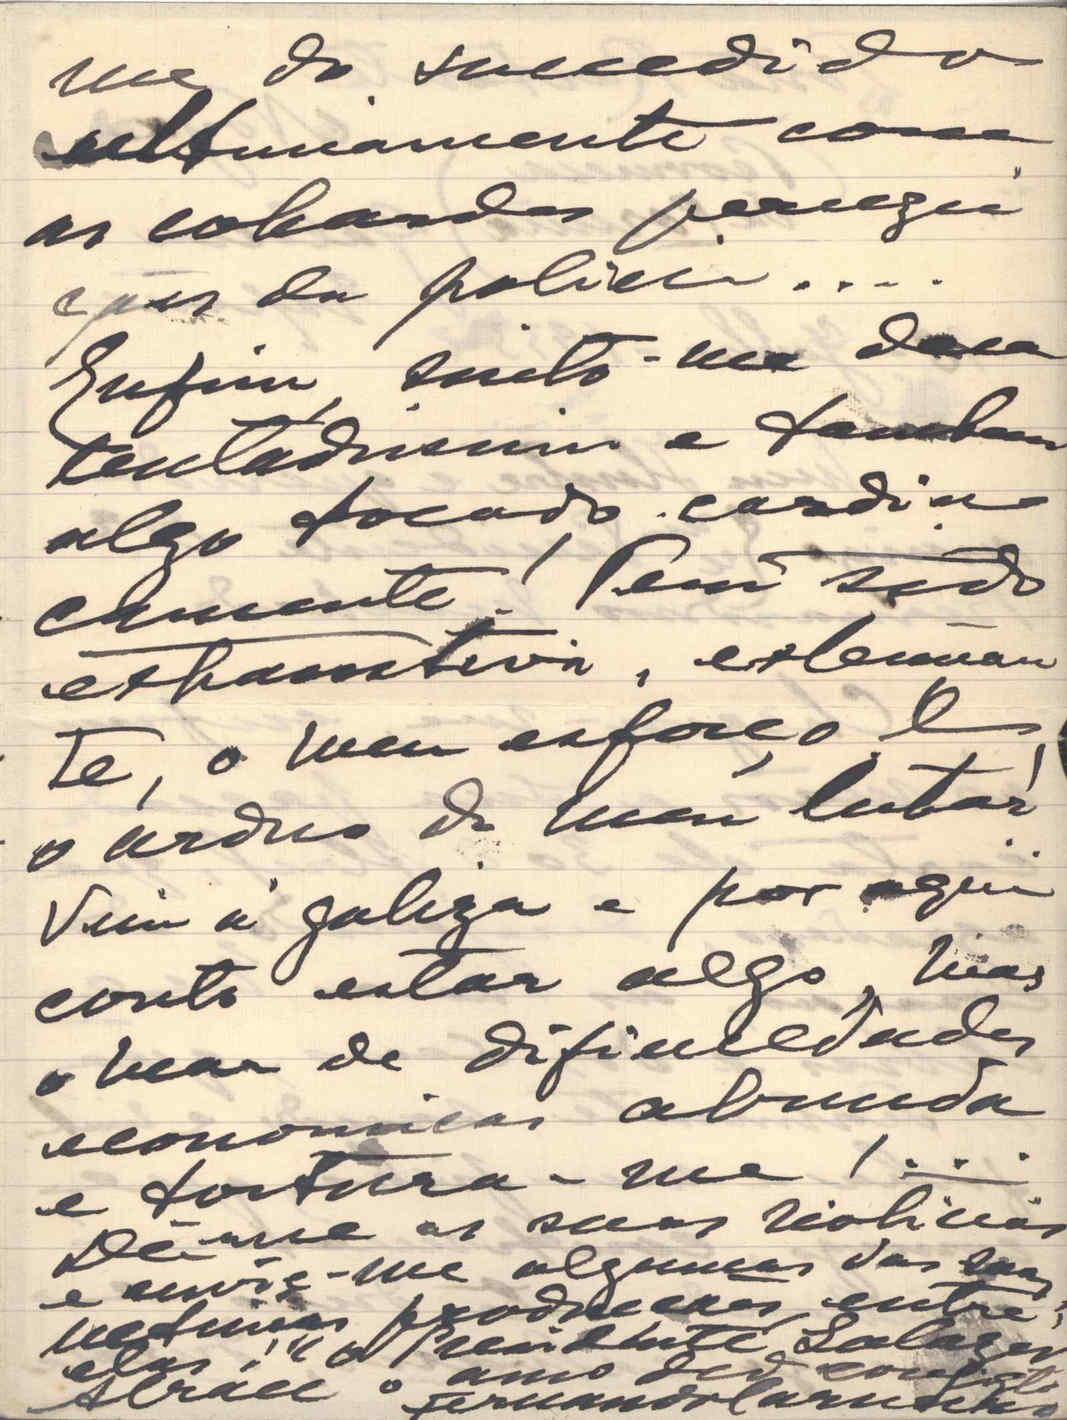 me do sucedido
ultimamente com
as cobardes persegui
ções da policia....
Enfim, sinto-me desa
lentadinimo e tambem
algo tocado cardia
camente! Tem sido
exhaustiva, extenuan
te, o meu esforço, e
o arduo do meu lutar!
Vim á galiza e por aqui
conto estar algo, mas
o mar de dificuldades
economicas abunda
e tortura-me!...
Dê-me as suas noticias
e envie-me algumas das suas
ultimas producções, entre
elas: "o Presidente Salazar
Abrace o amo ded. confrate
Fernando